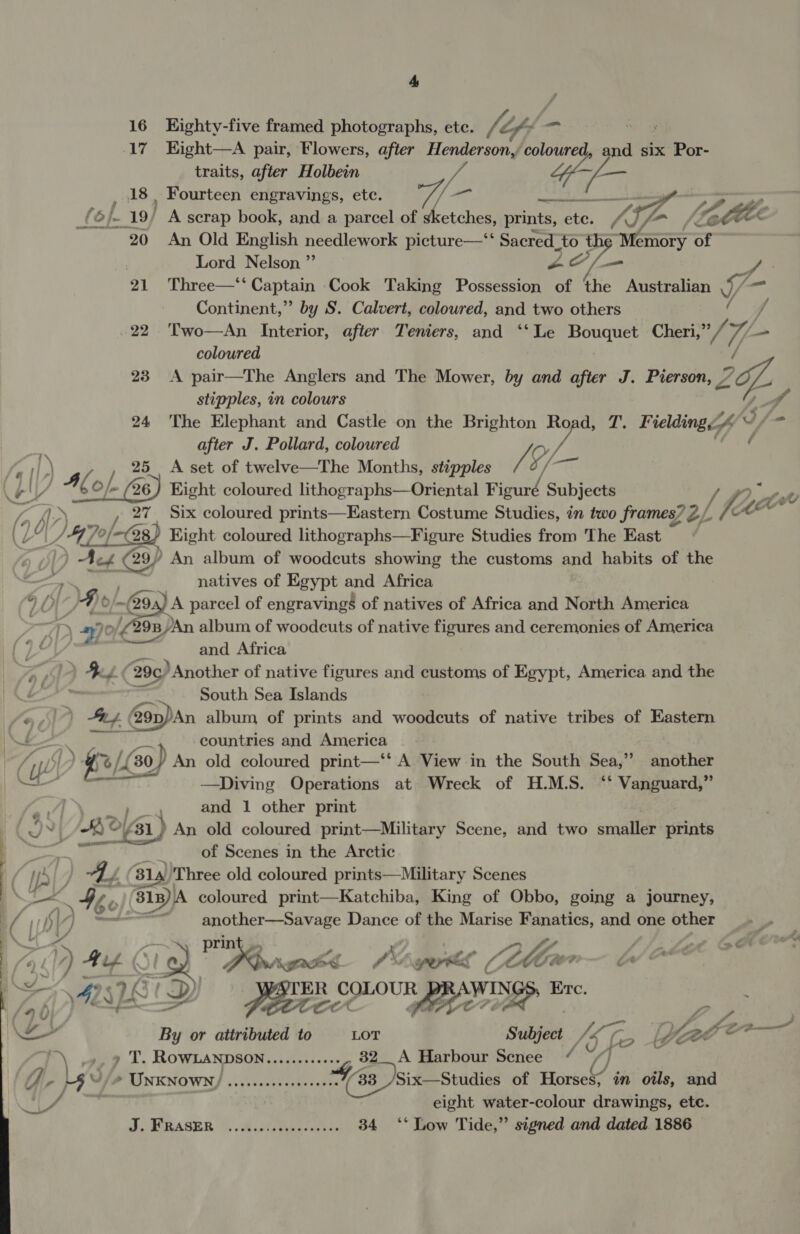 4
16 Eighty-five framed photographs, etc.
17 Eight—A pair, Flowers, after Henderson, coloured, and six Por-
traits, after Holbein
18 Fourteen engravings, etc.
19 A scrap book, and a parcel of sketches, prints, etc.
20 An Old English needlework picture—“ Sacred to the Memory of
Lord Nelson ”
21 Three—“ Captain Cook Taking Possession of the Australian
Continent,” by S. Calvert, coloured, and two others
22 Two—An Interior, after Teniers, and “ Le Bouquet Cheri,”
coloured
23 A pair—The Anglers and The Mower, by and after J. Pierson,
stipples, in colours
24 The Elephant and Castle on the Brighton Road, T. Fielding
after J. Pollard, coloured
25 A set of twelve—The Months, stipples
26 Eight coloured lithographs—Oriental Figure Subjects
27 Six coloured prints—Eastern Costume Studies, in two frames
28 Eight coloured lithographs—Figure Studies from The East
29 An album of woodcuts showing the customs and habits of the
natives of Egypt and Africa
29A A parcel of engravings of natives of Africa and North America
29B An album of woodcuts of native figures and ceremonies of America
and Africa
29C Another of native figures and customs of Egypt, America and the
South Sea Islands
29D An album of prints and woodcuts of native tribes of Eastern
countries and America
30 An old coloured print—“ A View in the South Sea,” another
—Diving Operations at Wreck of H.M.S. “ Vanguard,”
and 1 other print
31 An old coloured print—Military Scene, and two smaller prints
of Scenes in the Arctic
31A Three old coloured prints—Military Scenes
31B A coloured print—Katchiba, King of Obbo, going a journey,
another—Savage Dance of the Marise Fanatics, and one other
print
WATER COLOUR DRAWINGS, ETC.
By or attributed to LOT Subject
T. ROWLANDSON............ 32 A Harbour Scnee
UNKNOWN .................. 33 Six—Studies of Horses, in oils, and
eight water-colour drawings, etc.
J. FRASER .................. 34 “ Low Tide,” signed and dated 1886